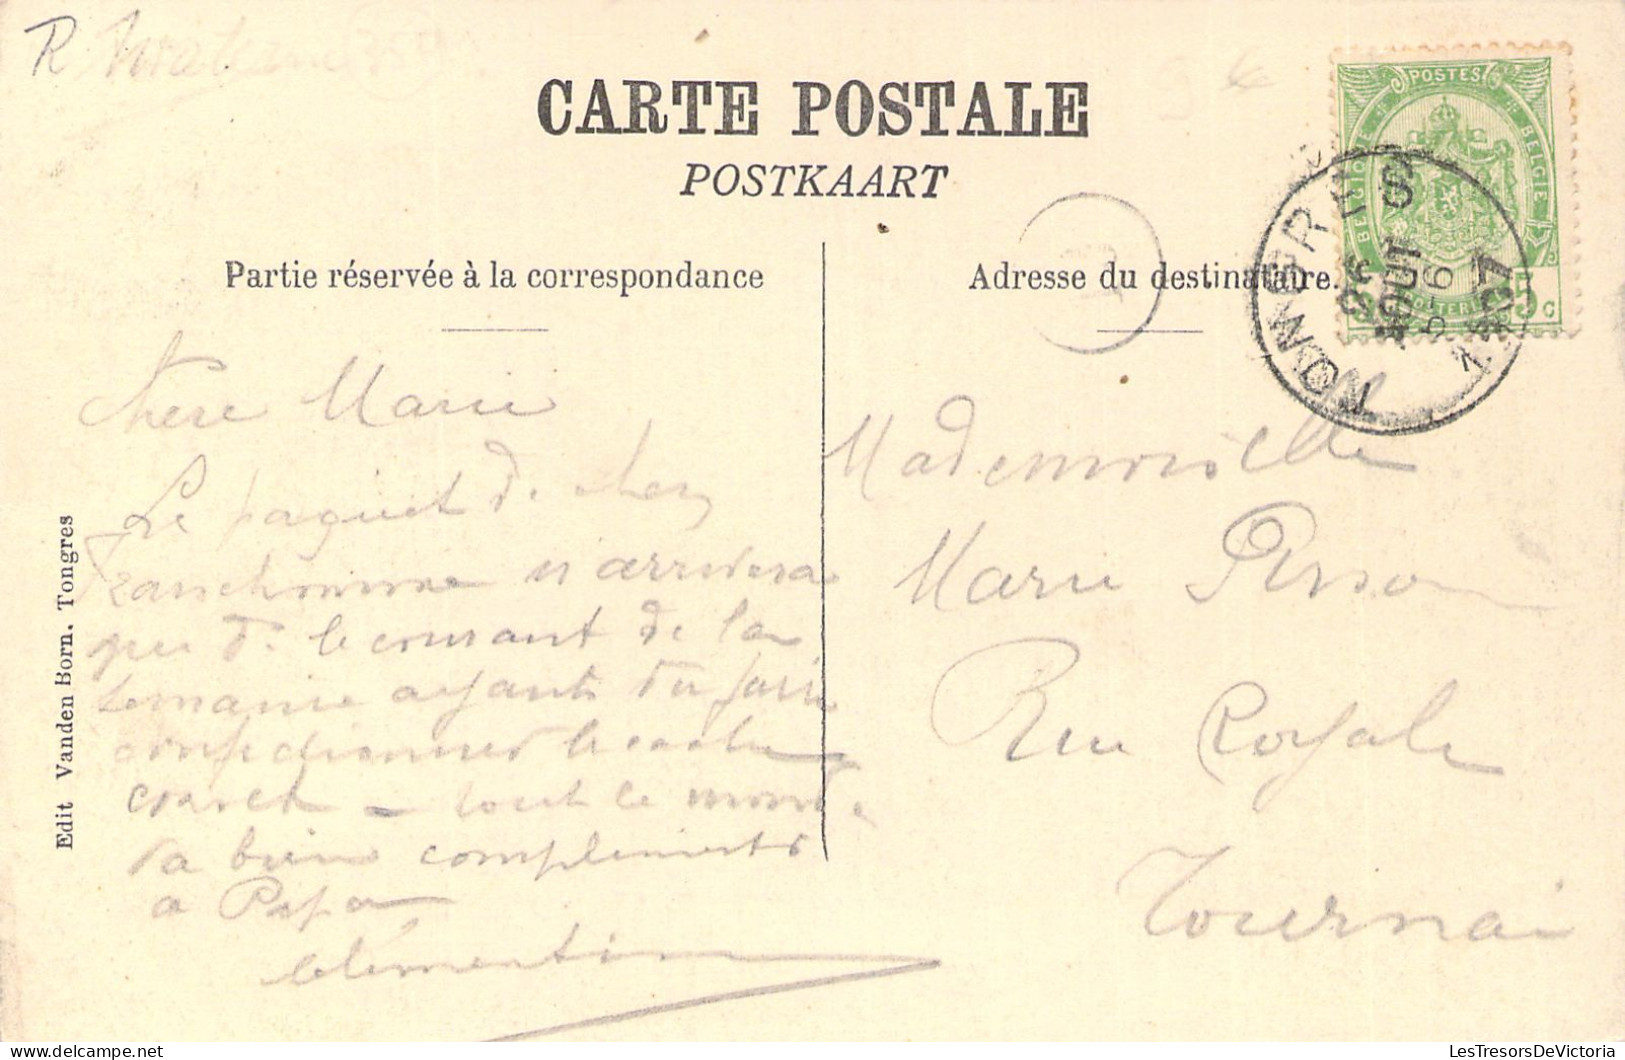 R
CARTE POSTALE
POSTKAART
Partie réservée à la correspondance
Adresse du destinataire.
POSTES
BELGIQUE
BELGIE
5 c
26
AOUT
1907
chere Marie
Le paquet de chez
Franchomme n'arrivera
que de le courant de la
semaine ayant du faire
confectionner le cache
corset – tout le monde
va bien compliments
a Papa
Clémentine
Mademoiselle
Marie
Rue Royale
Tournai
Edit Vanden Born. Tongres
LesTresorsDeVictoria